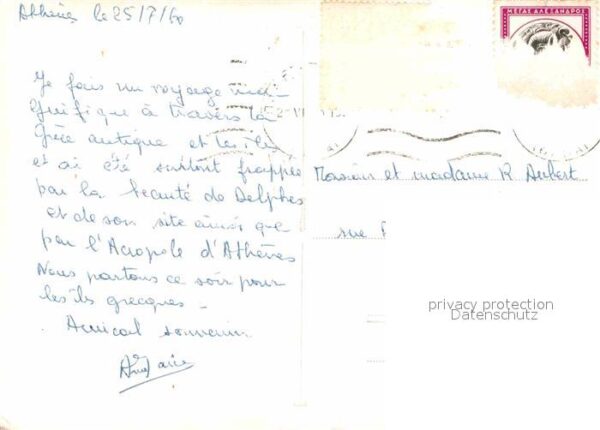 Athènes le 25/7/60
ΜΕΓΑΣ ΑΛΕΞΑΝΔΡΟΣ
Je fais un voyage ma-
gnifique à travers la
Grèce antique et les îles
et ai été surtout frappée
par la beauté de Delphes
et de son site ainsi que
par l'Acropole d'Athènes
Nous partons ce soir pour
les îls grecques -
Amical souvenir
Monsieur et madame R Aubert
rue
privacy protection
Datenschutz